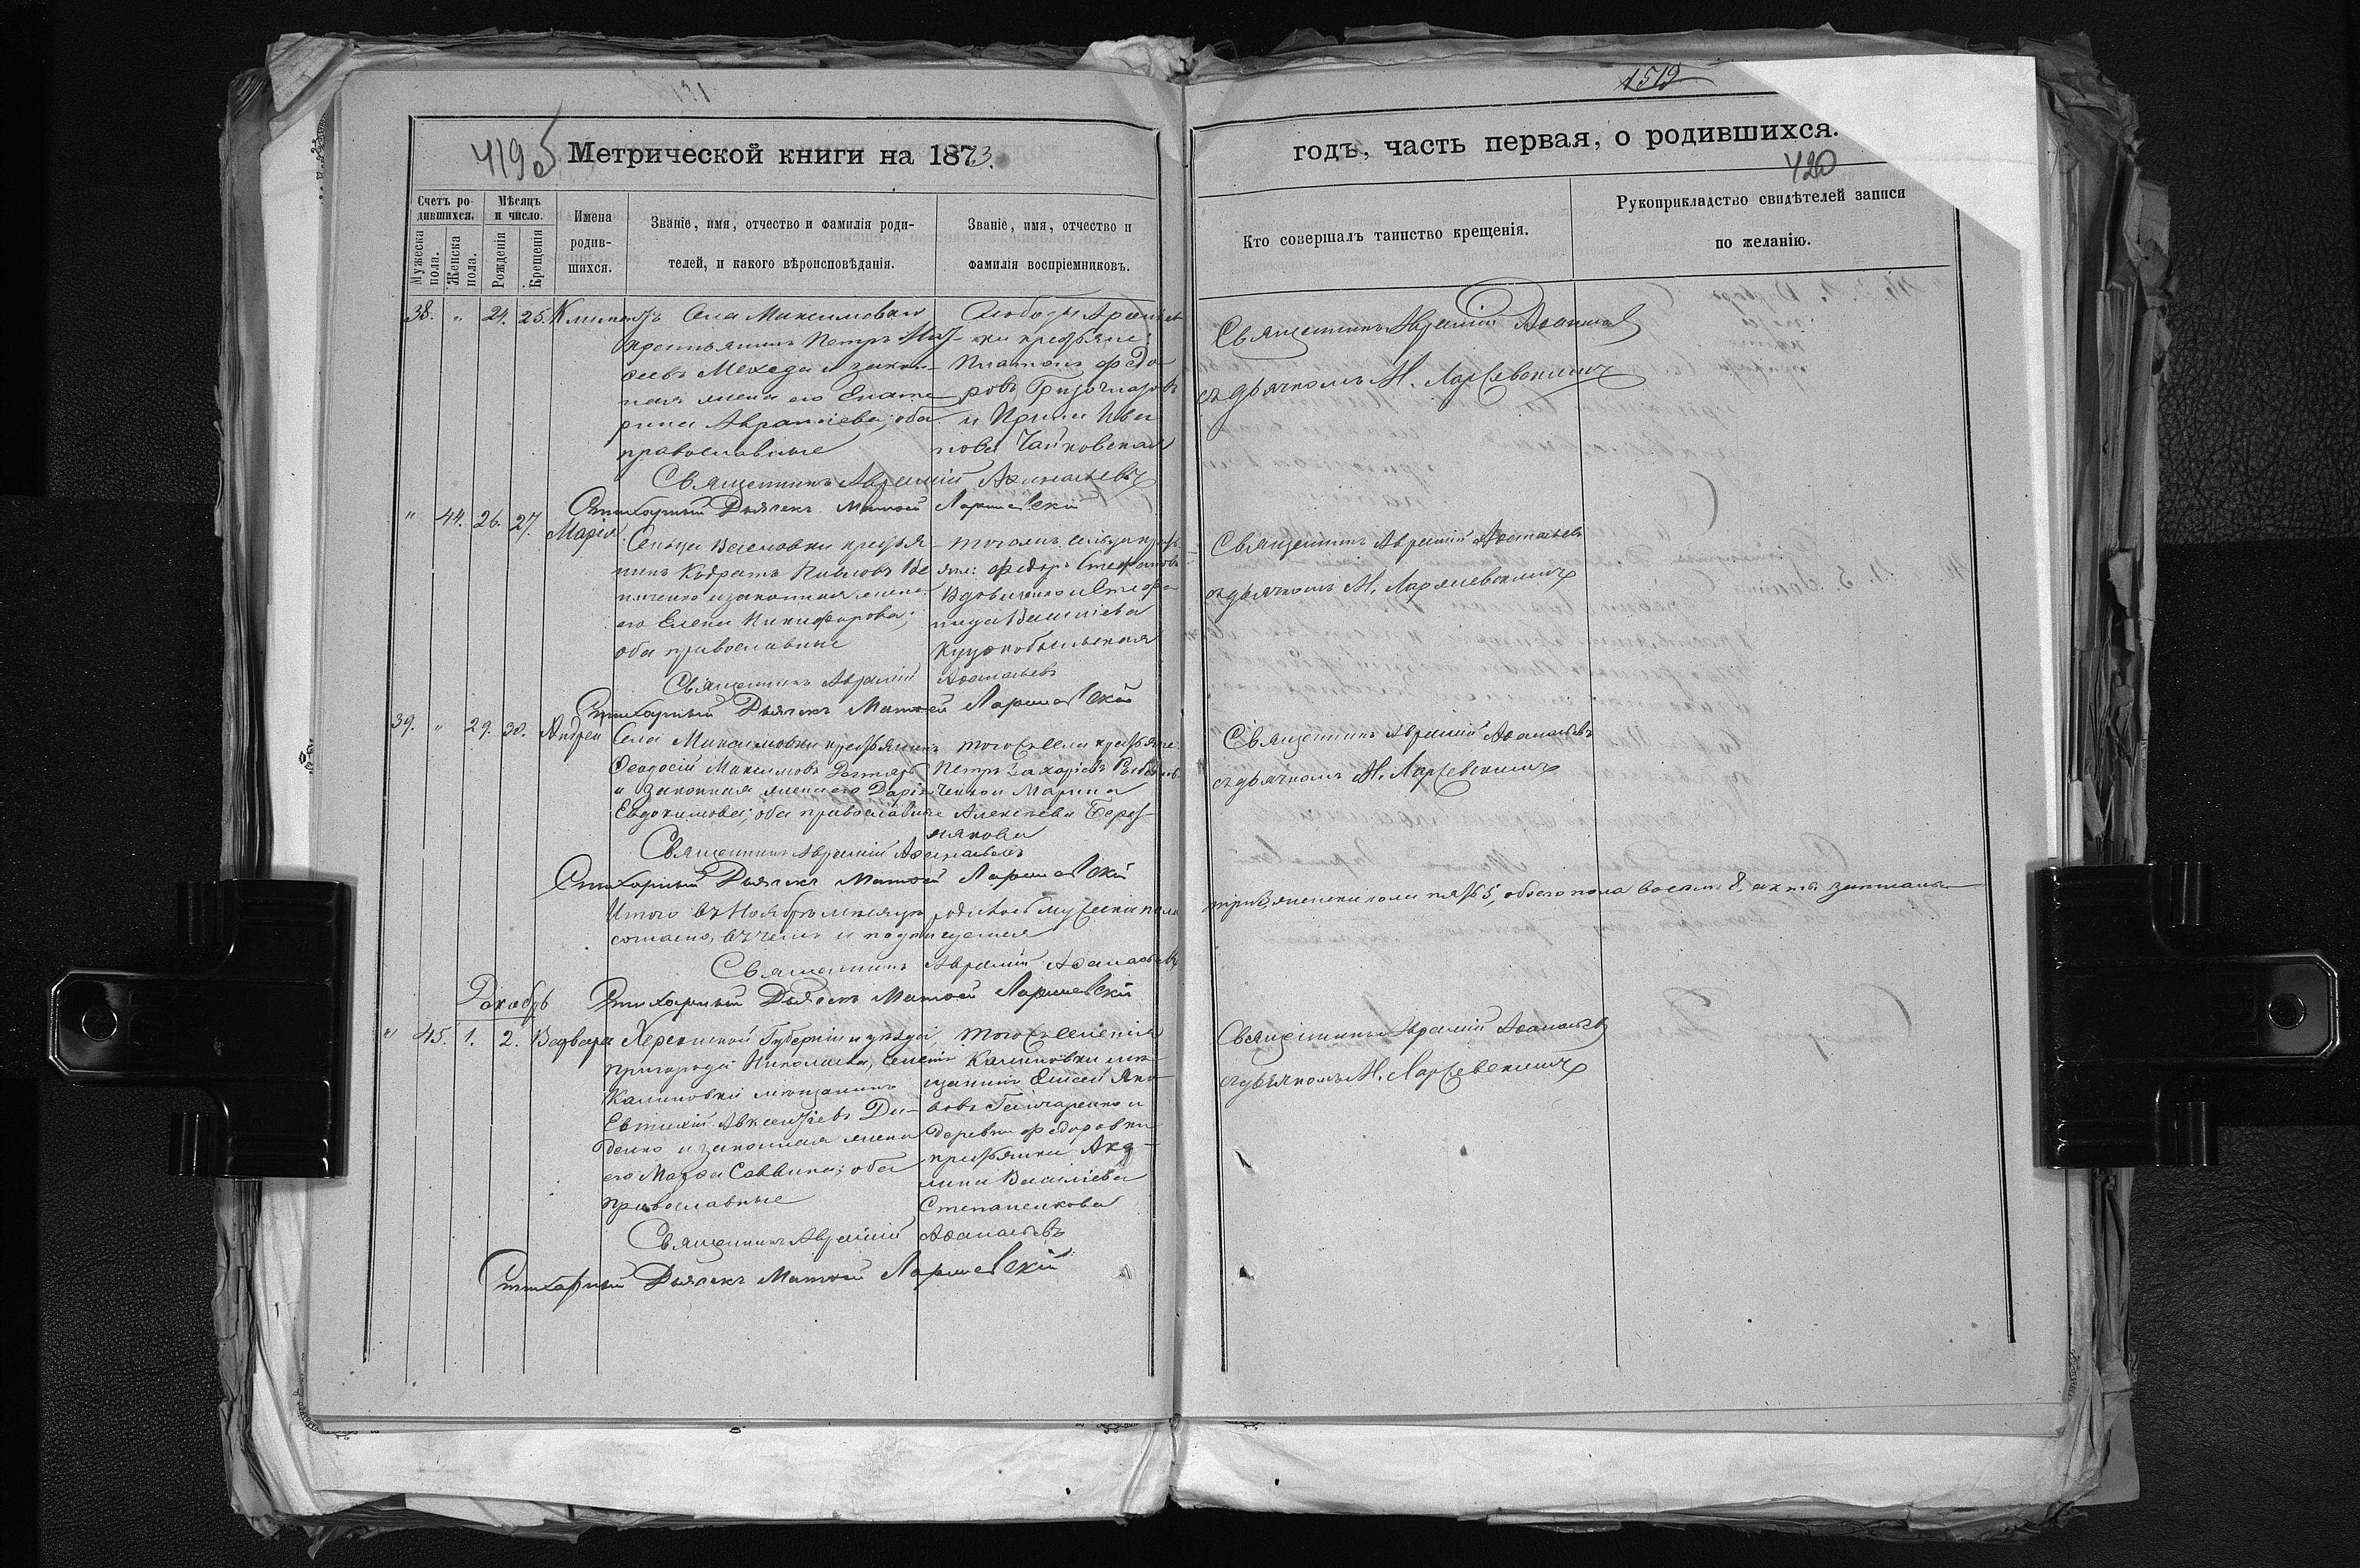 1519
419 об
Метрической книги на 1873.
годъ, часть первая, о родившихся.
420
Счетъ ро-
дившихся.
Мужеска пола.
Женска пола.
Мѣсяцъ
и число.
Рожденія
Крещенія
Имена
родив-
шихся.
Званіе, имя, отчество и фамилія роди-
телей, и какого вѣроисповѣданія.
Званіе, имя, отчество и
фамилія воспріемниковъ.
Кто совершалъ таинство крещенія.
Рукоприкладство свидѣтелей записи
по желанію.
38. " 24. 25. Климентъ
Села Максимовки
крестьянинъ Петръ
и закон-
ная жена его Екате-
рина Авраміева; оба
православные
Слободы
ки крестьяне:
Платонъ Федо-
ровъ
и Ирина Ива-
нова Чайковская
Священникъ Аврамій Аѳанасьевъ
съ дьячкомъ М. Ларжевскимъ
Священникъ Аврамій Аѳанасьевъ
Стихарный Дьячекъ Матѳей Ларжевскій
" 44. 26. 27. Марія
крестья-
нинъ Кодратъ Павловъ
и законная жена
его Елена Никифорова;
оба православные
Федоръ Стефановъ
Василіева
Священникъ Аврамій Аѳанасьевъ
съ дьячкомъ М. Ларжевскимъ
Священникъ Аврамій Аѳанасьевъ
Стихарный Дьячекъ Матѳей Ларжевскій
39. " 29. 30. Андрей
Села Максимовки крестьянинъ
Ѳеодосій Максимовъ
и законная жена его Дарія
Евдокимова; оба православные
того же села крестьяне
Петръ Захаріевъ
Марина
Алексѣева
Священникъ Аврамій Аѳанасьевъ
съ дьячкомъ М. Ларжевскимъ
Священникъ Аврамій Аѳанасьевъ
Стихарный Дьячекъ Матѳей Ларжевскій
Итого въ Ноябрѣ мѣсяцѣ родилось мужеска пола
три 3, женска пола пять 5, обоего пола восемь 8.
въ чемъ и подпишемся
Священникъ Аврамій Аѳанасьевъ
Стихарный Дьячекъ Матѳей Ларжевскій
Декабрь
" 45. 1. 2. Варвара
Херсонской Губерніи и уѣзда,
пригорода Николаева, селенія
Калиновки мѣщанинъ
Евтихій Авксентіевъ Ди-
денко и законная жена
его Марѳа Саввина; оба
православные
того же селенія
Калиновки мѣ-
щанинъ Елисей Яко-
вовъ Гончаренко и
деревни Федоровки
крестьянка Аку-
лина Василіева
Степаненкова
Священникъ Аврамій Аѳанасьевъ
съ дьячкомъ М. Ларжевскимъ
Священникъ Аврамій Аѳанасьевъ
Стихарный Дьячекъ Матѳей Ларжевскій